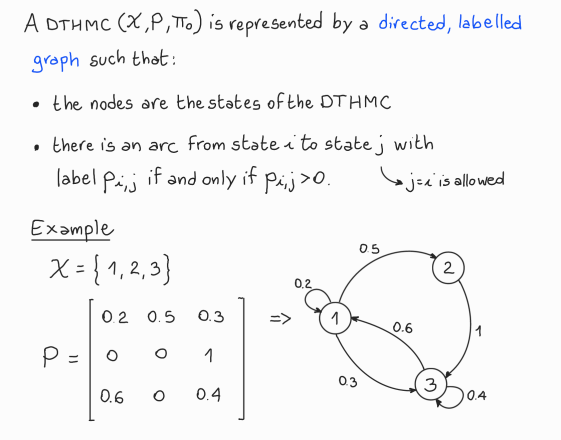 A DTHMC (X, P, π₀) is represented by a directed, labelled
graph such that:
• the nodes are the states of the DTHMC
• there is an arc from state i to state j with
label pᵢ,ⱼ if and only if pᵢ,ⱼ > 0.
j=i is allowed
Example
X = {1, 2, 3}
P = [
0.2 0.5 0.3
0 0 1
0.6 0 0.4
] =>
0.5
2
0.2
1
0.6
1
0.3
3
0.4